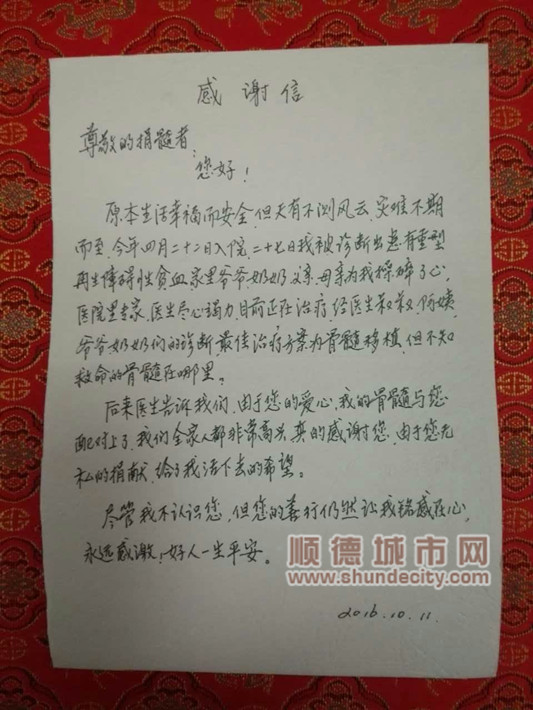 感谢信
尊敬的捐髓者:
您好!
原本生活幸福而安全,但天有不测风云,灾难不期
而至,今年四月二十二日入院,二十七日我被诊断出患有重型
再生障碍性贫血,家里爷爷奶奶,父亲,母亲为我操碎了心,
医院里专家、医生尽心竭力,目前正在治疗,经医生叔叔,阿姨,
爷爷奶奶们的诊断,最佳治疗方案为骨髓移植,但不知
救命的骨髓在哪里。
后来医生告诉我们,由于您的爱心,我的骨髓与您
配对上了,我们全家人都非常高兴,真的感谢您,由于您无
私的捐献,给了我活下去的希望。
尽管我不认识您,但您的善行仍然让我铭感在心,
永远感激,好人一生平安。
顺德城市网
www.shundecity.com
2016.10.11.